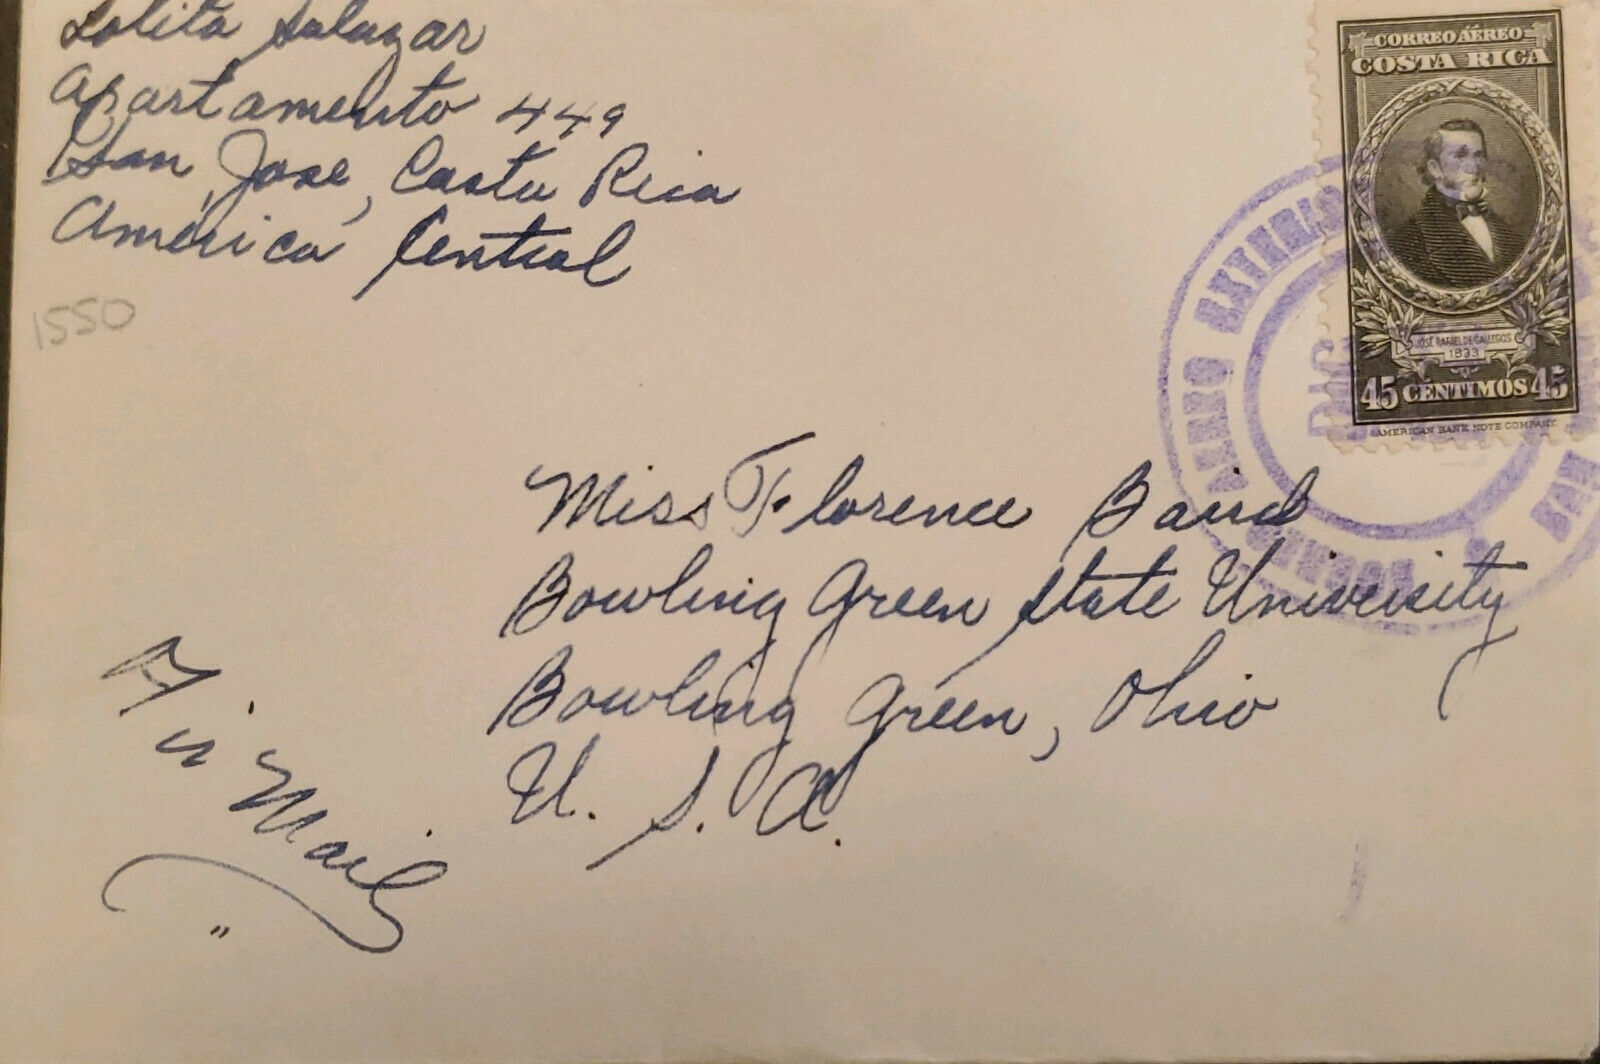 Lolita Salazar
Apartamento 449
San José, Costa Rica
América Central
1550
CORREO AÉREO
COSTA RICA
JOSÉ RAFAEL DE GALLEGOS
1833
45 CÉNTIMOS 45
AMERICAN BANK NOTE COMPANY
AEREO EXTERIOR
DIC
SAN
Miss Florence Baird
Bowling Green State University
Bowling Green, Ohio
U. S. A.
Air Mail
"